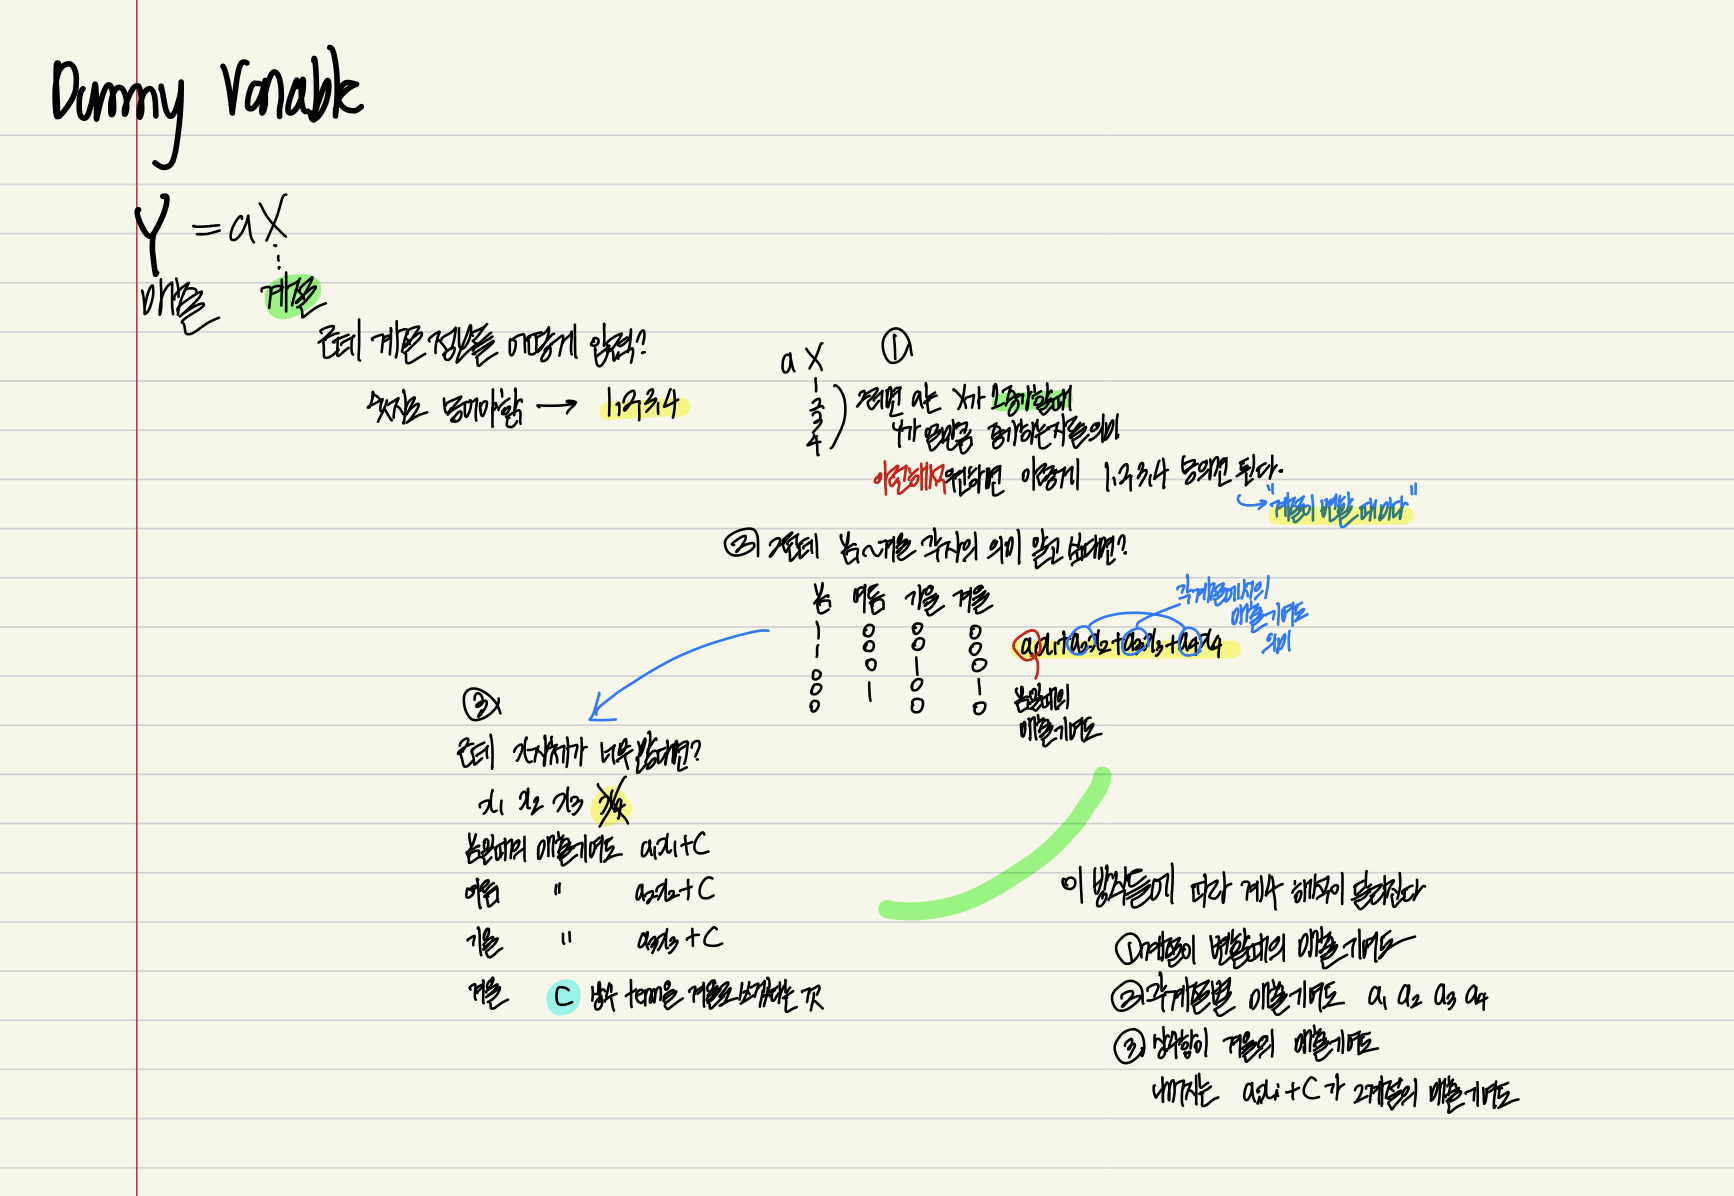 Dummy Variable
Y = aX
매출 계절
근데 계절 정보를 어떻게 입력?
숫자로 넣어야함 → 1,2,3,4
a X ①
1
2
3
4
그러면 a는 X가 1증가할때
Y가 얼만큼 증가하는지를 의미
이런해석 원하면 이렇게 1,2,3,4 넣으면 된다.
"계절이 변할 때마다"
② 근데 봄~겨울 각자의 의미 알고 싶다면?
봄 여름 가을 겨울
1 0 0 0
1 0 0 0
0 0 1 0
0 1 0 1
0 0 0
a1x1+a2x2+a3x3+a4x4
각계절에서의
매출기여도
의미
봄일때의
매출기여도
③
근데 가 너무 많다면?
x1 x2 x3 x4
봄일때의 매출기여도 a1x1+C
여름 " a2x2+C
가을 " a3x3+C
겨울 C 상수 term을 겨울로 보겠다는 것
이 방식들에 따라 계수 해석이 달라진다
① 계절이 변할때의 매출기여도
② 각계절별 매출기여도 a1 a2 a3 a4
③ 상수항이 겨울의 매출기여도
나머지는 aixi+C가 그계절의 매출기여도